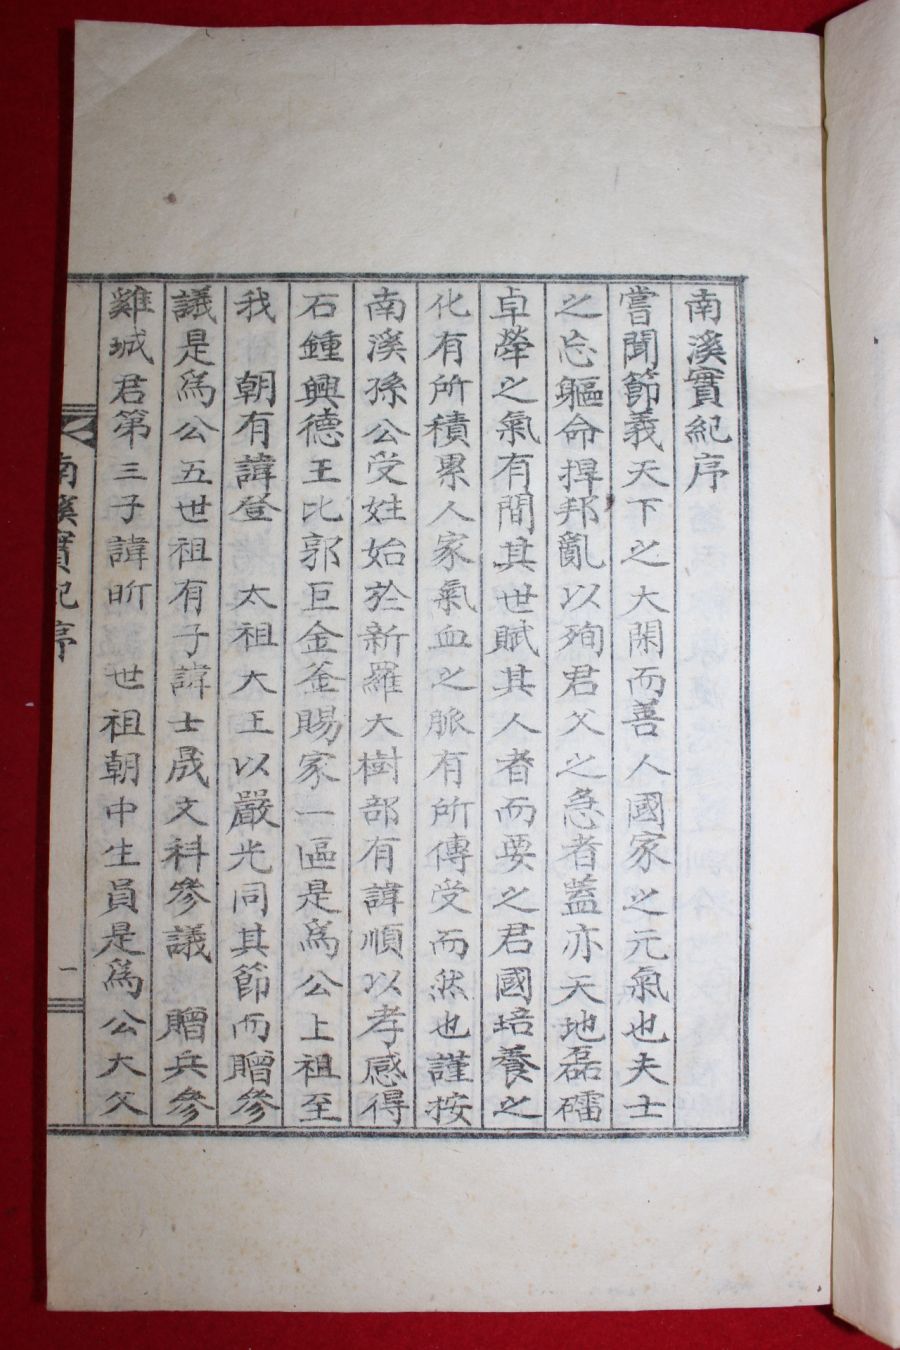 南溪實紀序
嘗聞節義天下之大閑而善人國家之元氣也夫士
之忘軀命捍邦亂以殉君父之急者蓋亦天地磊礌
卓犖之氣有間其世賦其人者而要之君國培養之
化有所積累人家氣血之脈有所傳受而然也謹按
南溪孫公受姓始於新羅大樹部有諱順以孝感得
石鍾興德王比郭巨金釜賜家一區是爲公上祖至
我 朝有諱登 太祖大王以嚴光同其節而贈參
議是爲公五世祖有子諱士晟文科參議 贈兵參
雞城君第三子諱昕 世祖朝中生員是爲公大父
南溪實紀序
一